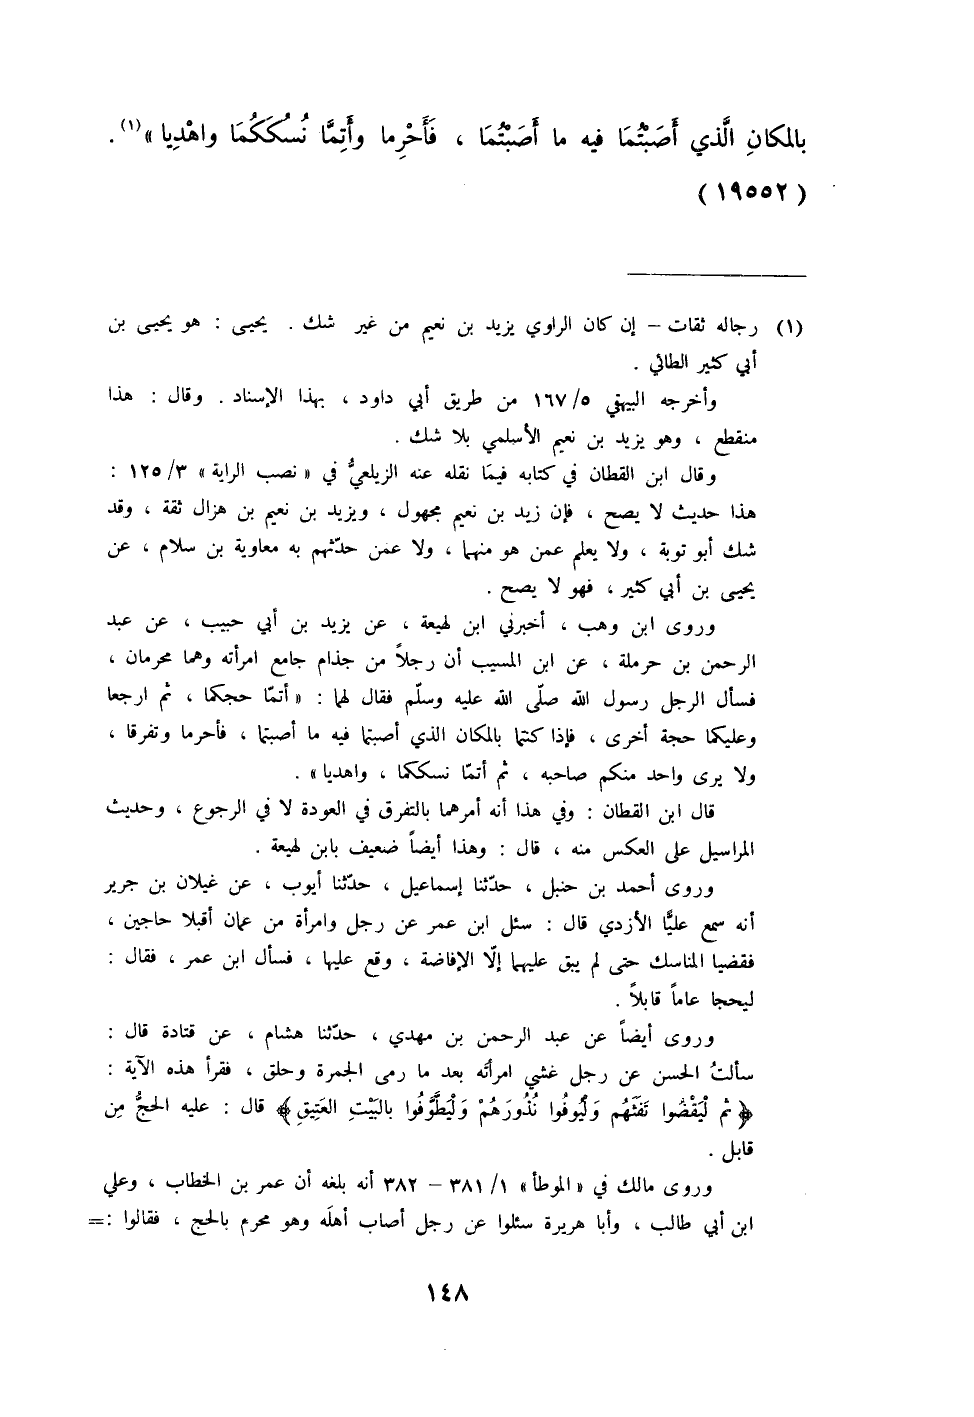 بالمكانِ الَّذي أَصَبْتُمَا فيه ما أَصَبْتُمَا ، فَأَحْرِما وأَتِمَّا نُسُكَكُمَا واهْدِيا »(١) .
( ١٩٥٥٢ )
(١) رجاله ثقات – إن كان الراوي يزيد بن نعيم من غير شك . يحيـى : هو يحيـى بن
أبي كثير الطائي .
وأخرجه البيهقي ٥/ ١٦٧ من طريق أبي داود ، بهذا الإسناد . وقال : هذا
منقطع ، وهو يزيد بن نعيم الأسلمي بلا شك .
وقال ابن القطان في كتابه فيمَا نقله عنه الزيلعيُّ في « نصب الراية » ٣/ ١٢٥ :
هذا حديث لا يصح ، فإن زيد بن نعيم مجهول ، ويزيد بن نعيم بن هزال ثقة ، وقد
شك أبو توبة ، ولا يعلم عمن هو منهما ، ولا عمن حدّثهم به معاوية بن سلام ، عن
يحيـى بن أبي كثير ، فهو لا يصح .
وروى ابن وهب ، أخبرني ابن لهيعة ، عن يزيد بن أبي حبيب ، عن عبد
الرحمن بن حرملة ، عن ابن المسيب أن رجلاً من جذام جامع امرأته وهما محرمان ،
فسأل الرجل رسول الله صلّى الله عليه وسلّم فقال لهما : « أتمّا حجكما ، ثم ارجعا
وعليكما حجة أخرى ، فإذا كنتما بالمكان الذي أصبتما فيه ما أصبتما ، فأحرما وتفرقا ،
ولا يرى واحد منكم صاحبه ، ثم أتمّا نسككما ، واهديا » .
قال ابن القطان : وفي هذا أنه أمرهما بالتفرق في العودة لا في الرجوع ، وحديث
المراسيل على العكس منه ، قال : وهذا أيضاً ضعيف بابن لهيعة .
وروى أحمد بن حنبل ، حدّثنا إسماعيل ، حدّثنا أيوب ، عن غيلان بن جرير
أنه سمع عليًّا الأزدي قال : سئل ابن عمر عن رجل وامرأة من عمان أقبلا حاجين ،
فقضيا المناسك حتى لم يبق عليهما إلّا الإفاضة ، وقع عليها ، فسأل ابن عمر ، فقال :
ليحجا عاماً قابلاً .
وروى أيضاً عن عبد الرحمن بن مهدي ، حدّثنا هشام ، عن قتادة قال :
سألتُ الحسن عن رجل غشي امرأتَه بعد ما رمى الجمرة وحلق ، فقرأ هذه الآية :
﴿ ثم لْيَقْضُوا تَفَثَهُم وَلْيُوفُوا نُذُورَهُمْ وَلْيَطَّوَّفُوا بالبَيْتِ العَتِيقِ ﴾ قال : عليه الحجُّ مِن
قابل .
وروى مالك في « الموطأ » ١/ ٣٨١ – ٣٨٢ أنه بلغه أن عمر بن الخطاب ، وعلي
ابن أبي طالب ، وأبا هريرة سئلوا عن رجل أصاب أهلَه وهو محرم بالحج ، فقالوا :=
١٤٨